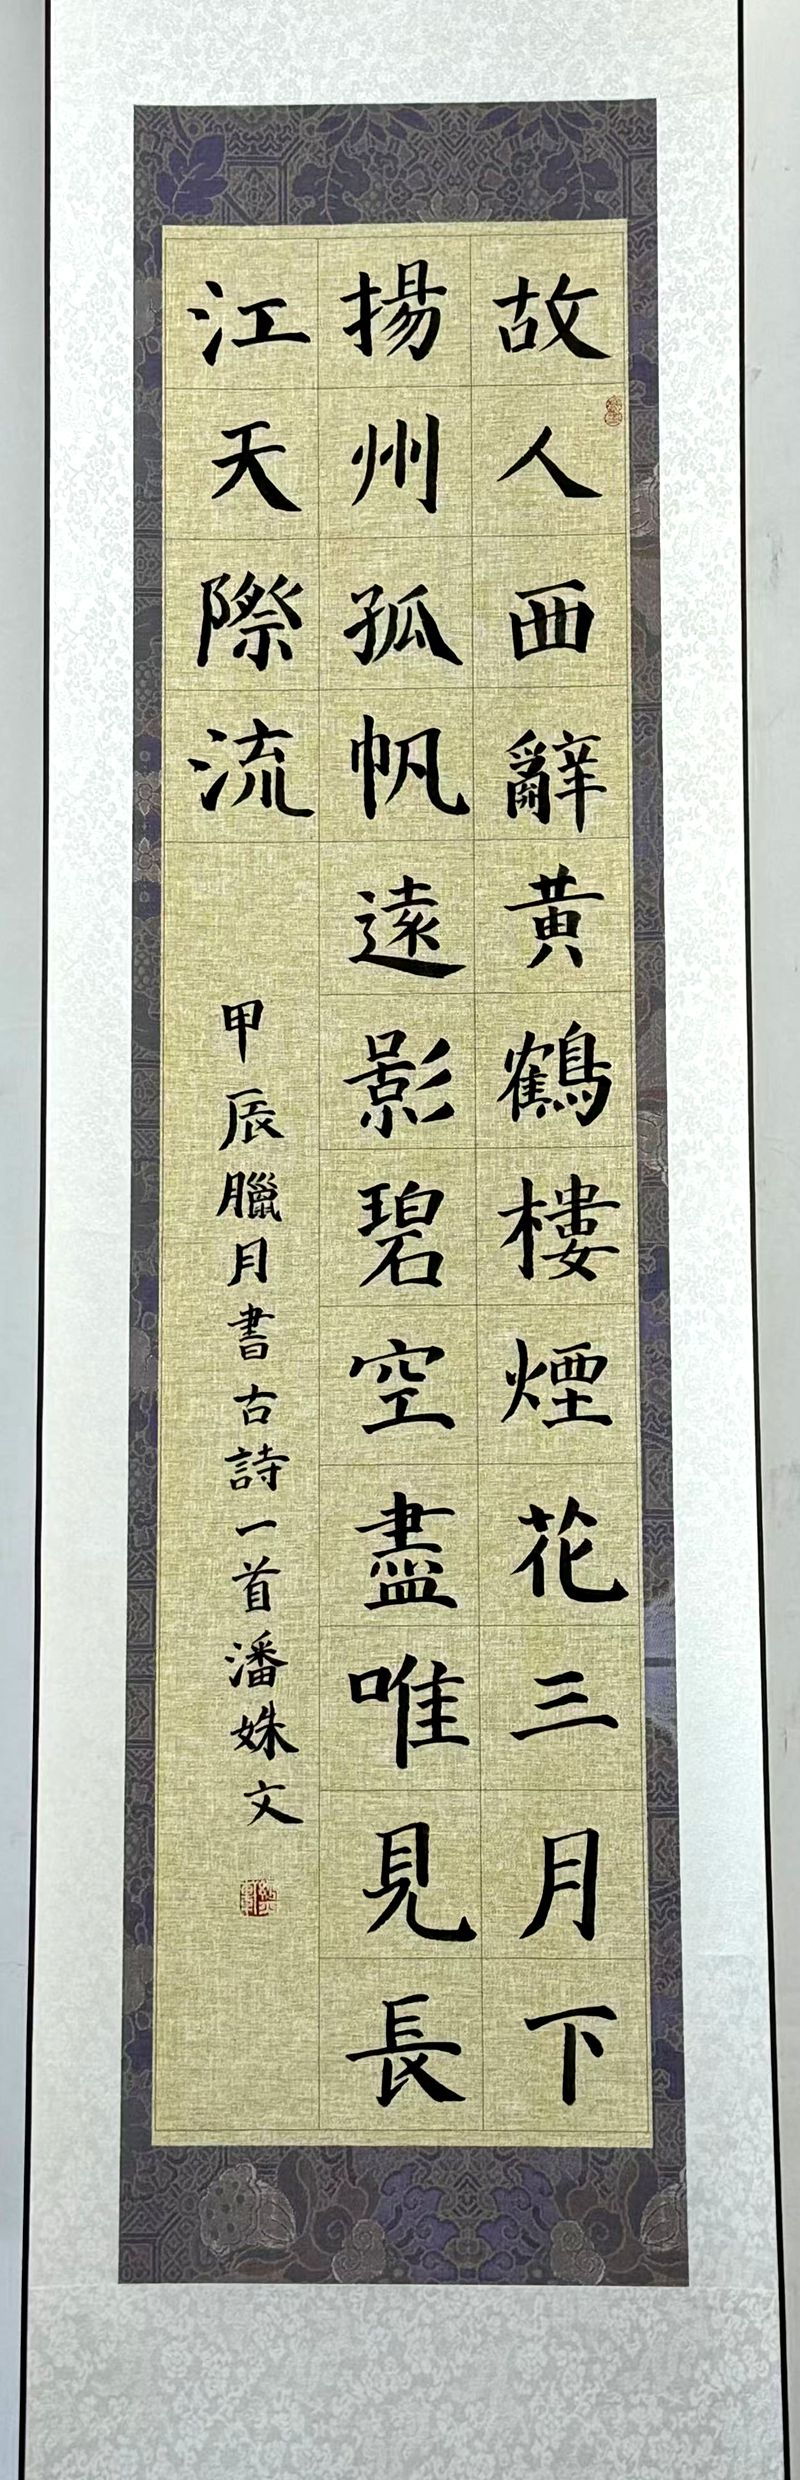 故人西辭黄鶴樓煙花三月下
揚州孤帆遠影碧空盡唯見長
江天際流
甲辰臘月書古詩一首潘姝文